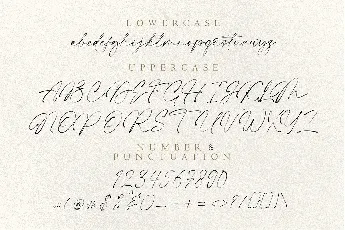 LOWERCASE
abcdefghijklmnopqrstuvwxyz
UPPERCASE
ABCDEFGHIJKLM
NOPQRSTUVWXYZ
NUMBER &
PUNCTUATION
1234567890